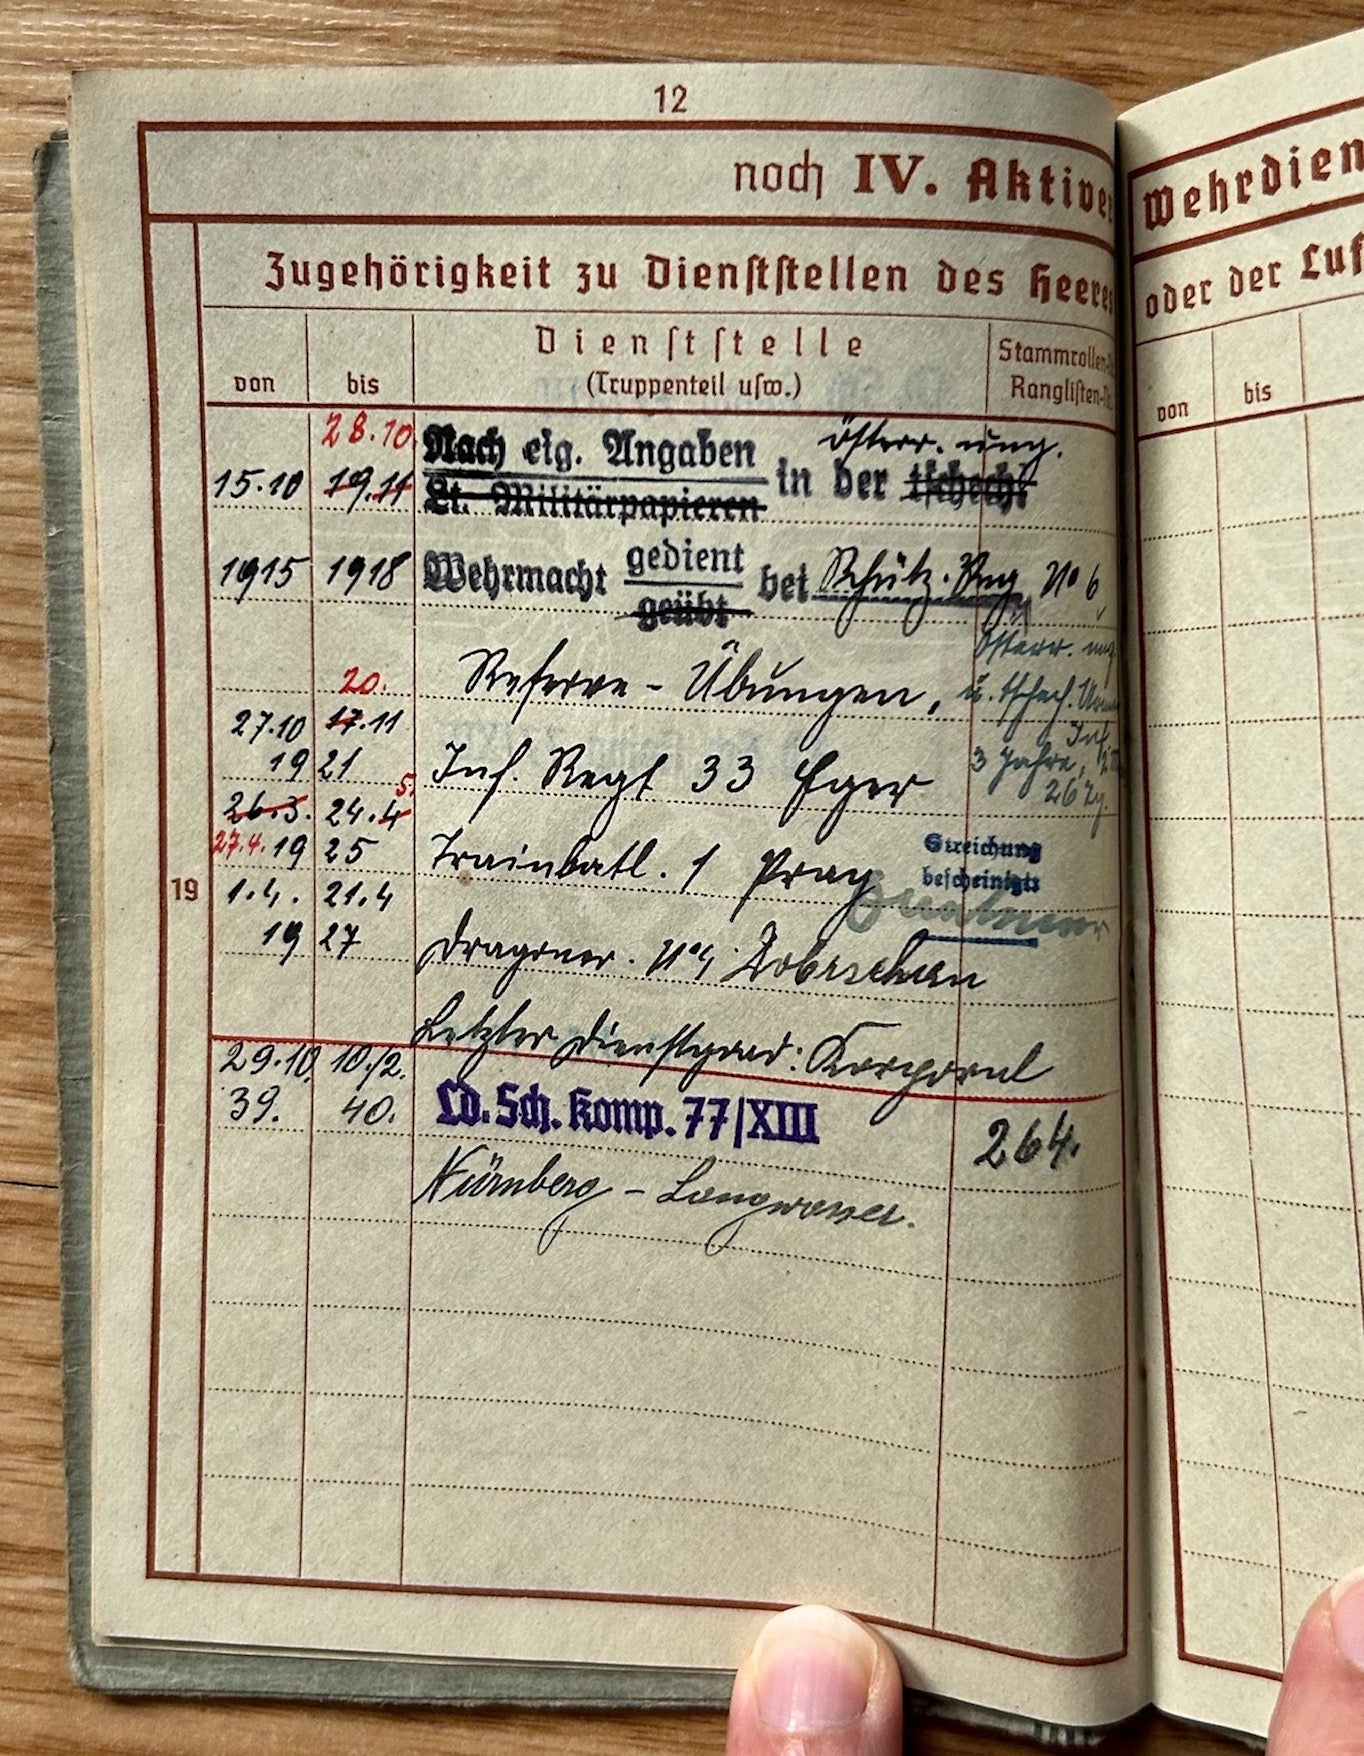 12
noch IV. Aktiver
Wehrdien
Zugehörigkeit zu Dienststellen des Heeres
oder der Luf
von
bis
Dienststelle
(Truppenteil usw.)
Stammrollen-
Ranglisten-
von
bis
28.10
Nach eig. Angaben
österr. ung.
15.10
19.11
Lt. Militärpapieren
in der tschech.
1915
1918
Wehrmacht gedient
geübt
bei Schütz. Reg No 6
Österr. ung
20.
Reserve - Übungen,
u. tschech.
27.10
17.11
Inf.
19 21
Inf. Regt 33 Eger
3 Jahre,
5.
26.3.
24.4
27.4. 19 25
Trainbatl. 1 Prag
Streichung
bescheinigt:
19
1.4.
21.4
19 27
Dragoner.
Letzter Dienstgrad: Korporal
29.10.
10./2.
39.
40.
Ld. Sch. Komp. 77/XIII
264.
Nürnberg - Langwasser.